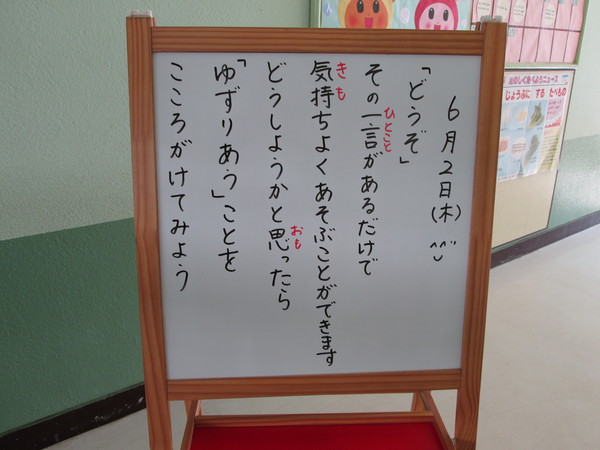 6月2日(木)
「どうぞ」
その一言があるだけで
ひとこと
気持ちよくあそぶことができます
きも
どうしようかと思ったら
おも
「ゆずりあう」ことを
こころがけてみよう
じょうぶに する たべもの